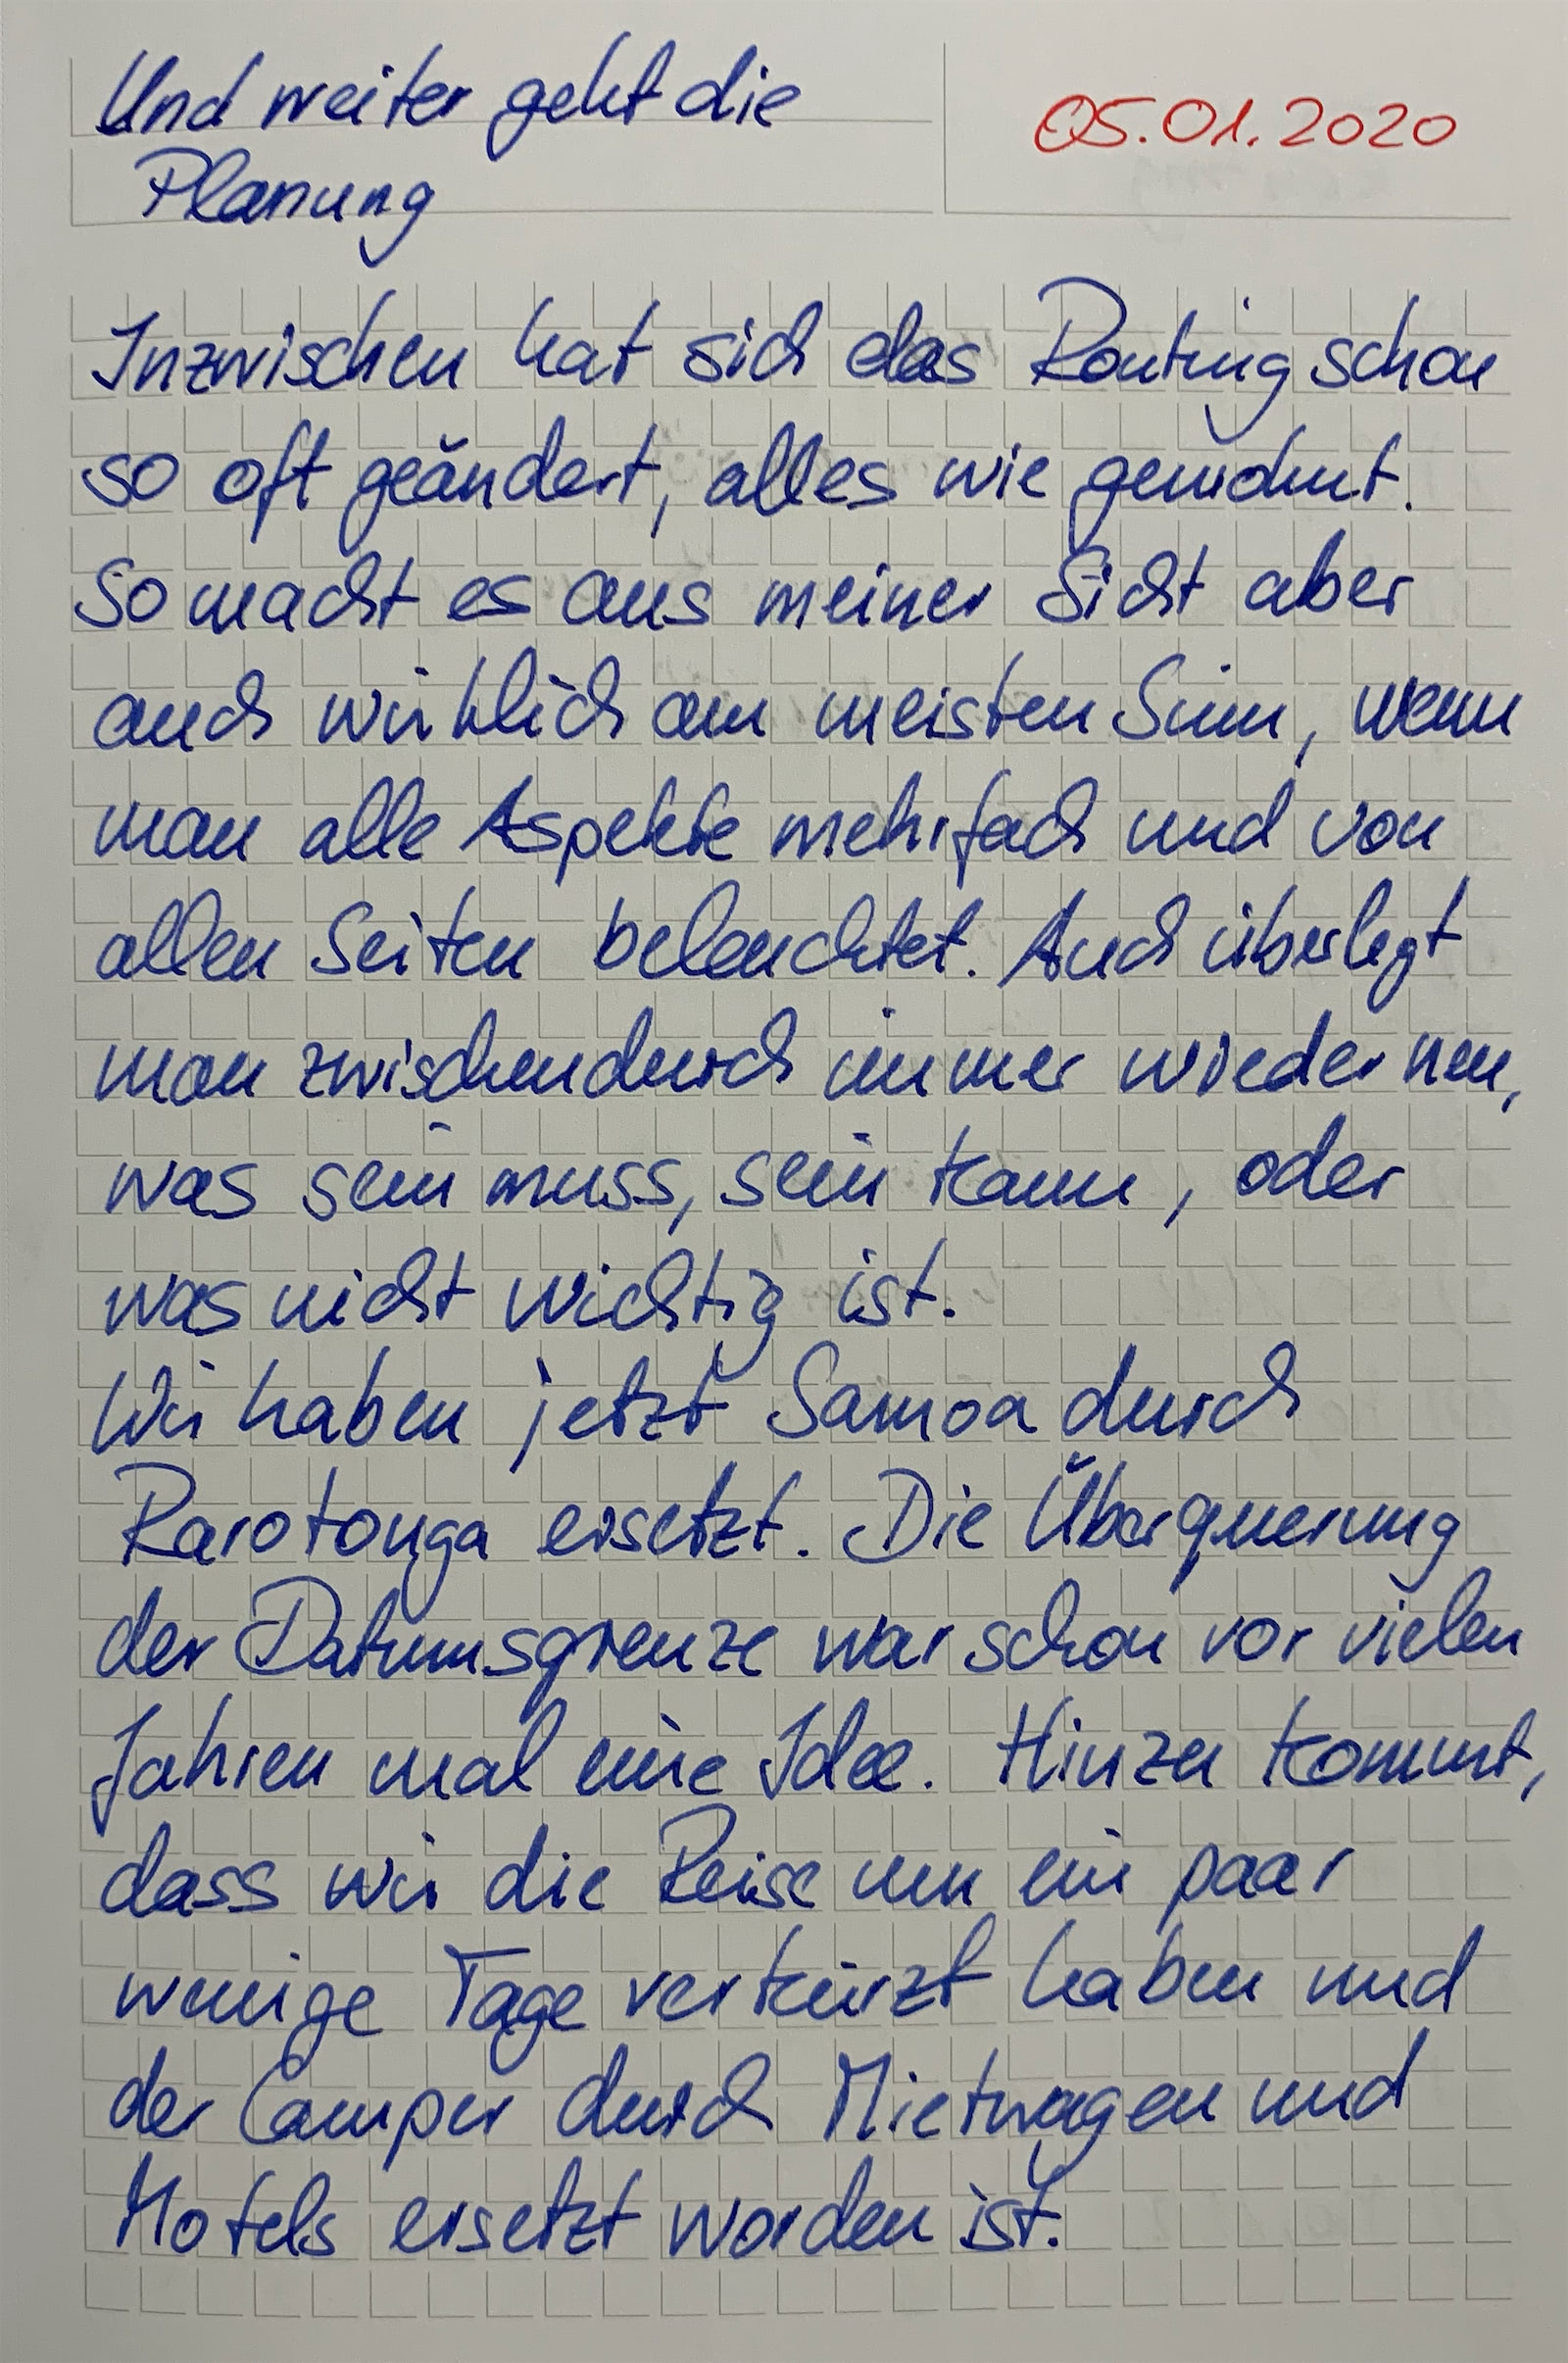 Und weiter geht die
Planung
05.01.2020
Inzwischen hat sich das Routing schon
so oft geändert, alles wie gewohnt.
So macht es aus meiner Sicht aber
auch wirklich am meisten Sinn, wenn
man alle Aspekte mehrfach und von
allen Seiten beleuchtet. Auch überlegt
man zwischendurch immer wieder neu,
was sein muss, sein kann, oder
was nicht wichtig ist.
Wir haben jetzt Samoa durch
Rarotonga ersetzt. Die Überquerung
der Datumsgrenze war schon vor vielen
Jahren mal eine Idee. Hinzu kommt,
dass wir die Reise um ein paar
wenige Tage verkürzt haben und
der Camper durch Mietwagen und
Motels ersetzt worden ist.